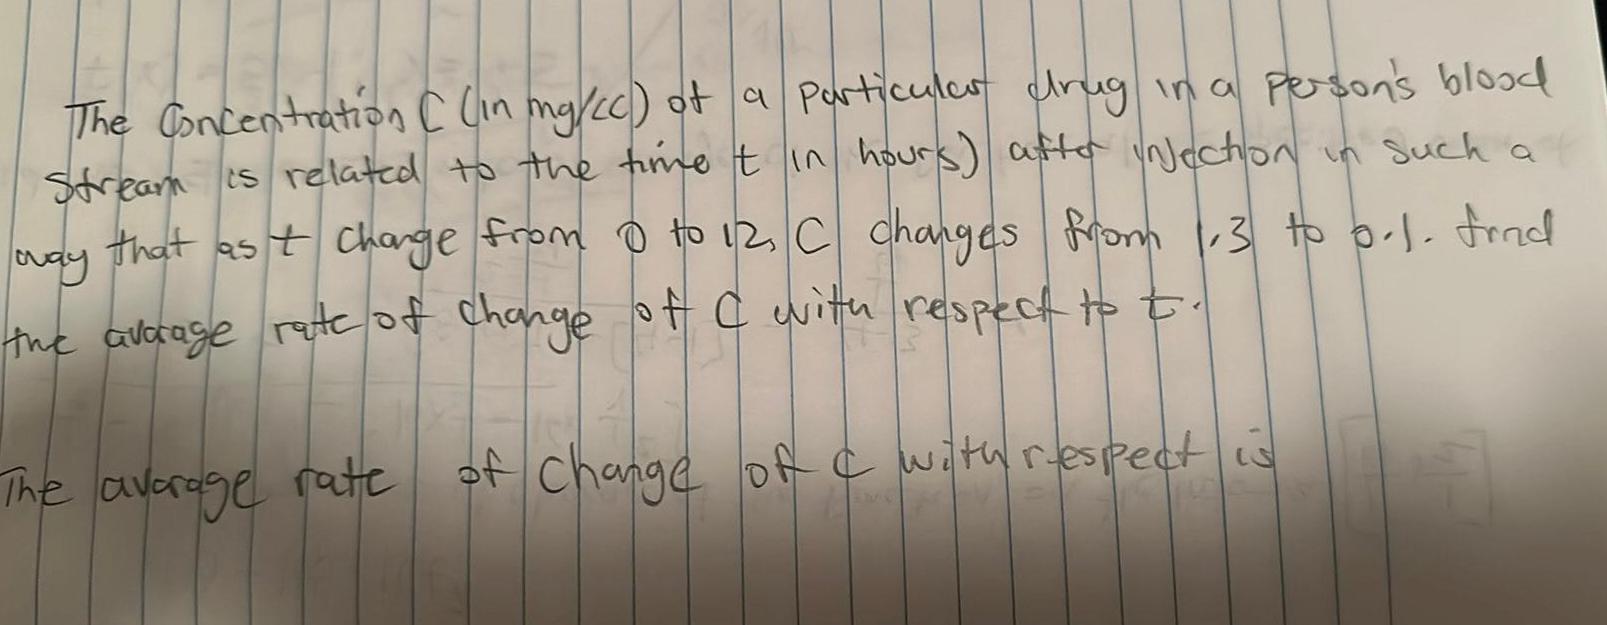 The Concentration C (in mg/cc) of a particular drug in a person's blood
stream is related to the time t in hours) after injection in such a
way that as t change from 0 to 12, C changes from 1.3 to 0.1. find
the average rate of change of C with respect to t.
The average rate of change of C with respect is